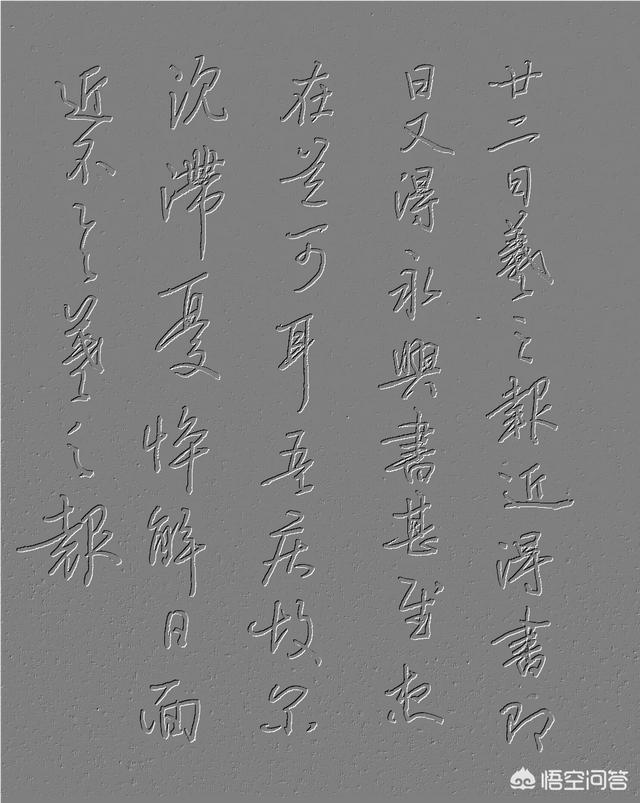 廿二日羲之報近得書即
日又得永興書甚慰想
在道可耳吾疾故尔
沉滯憂悴解日面
近不具羲之報
悟空问答